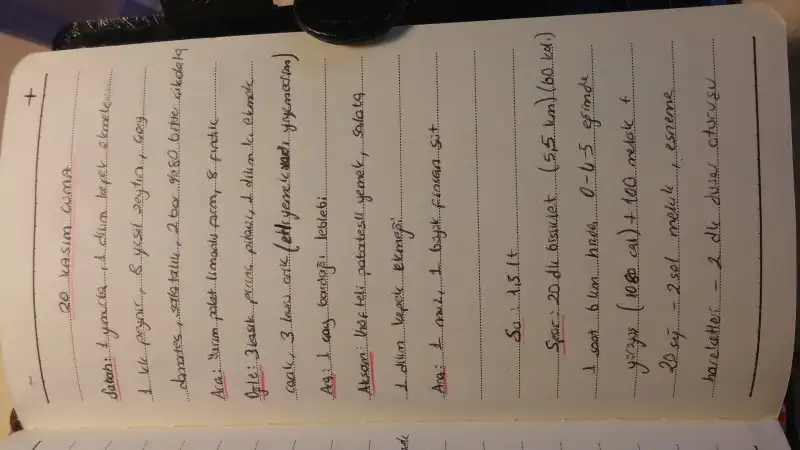 20 KASIM CUMA
Sabah: 1 yumurta, 1 dilim kepek ekmek
1 kk peynir, 8 yeşil zeytin, çay
domates, salatalık, 2 bar %80 bitter çikolata
Ara: Yarım paket limonlu 8 fındık
Öğle: 3 kaşık pirinç pilavı, 1 dilim k. ekmek
cacık, 3 (etli yemek yiyemedim)
Ara: 1 çay bardağı leblebi
Akşam: Köfteli patatesli yemek, salata
1 dilim kepek ekmeği
Ara: 1 muz, 1 büyük fincan süt
Su: 1,5 lt
Spor: 20 dk bisiklet (5,5 km) (60 kal.)
1 saat 6 km hızda 0-4-5 eğimde
yürüyüş (1080 cal) + 100 mekik +
20 - 2 set mekik, esneme
hareketler - 2 dk duvar oturuşu